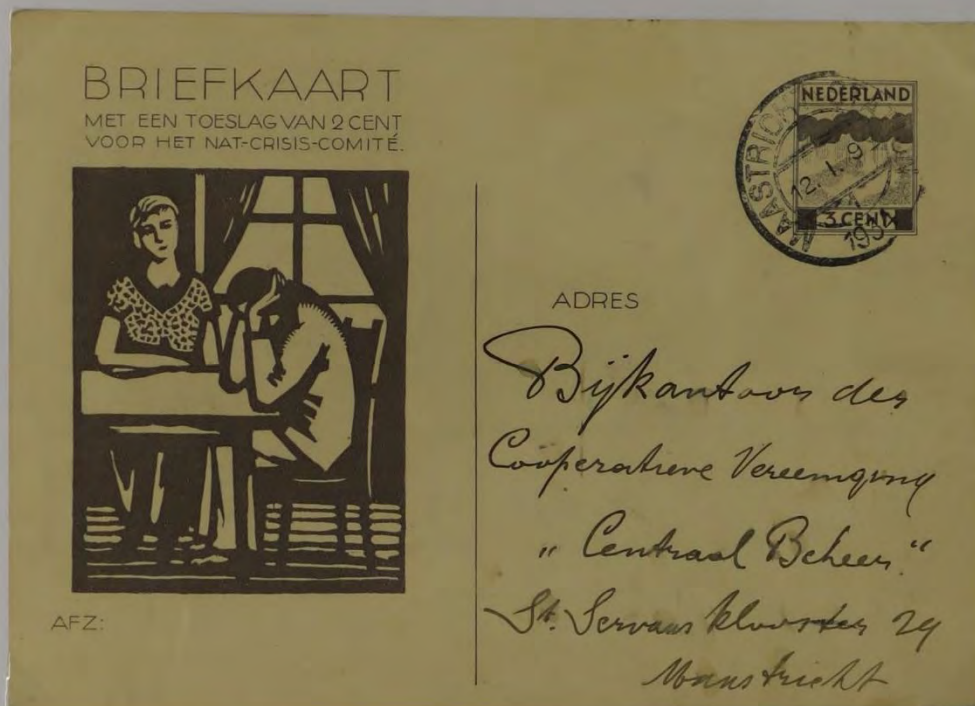 BRIEFKAART
MET EEN TOESLAG VAN 2 CENT
VOOR HET NAT-CRISIS-COMITÉ.
NEDERLAND
3 CENT
MAASTRICH
12. 1. 9
193
ADRES
Bijkantoor der
Coöperatieve Vereeniging
„ Centraal Beheer. “
St. Servaas klooster 29
Maastricht
AFZ: